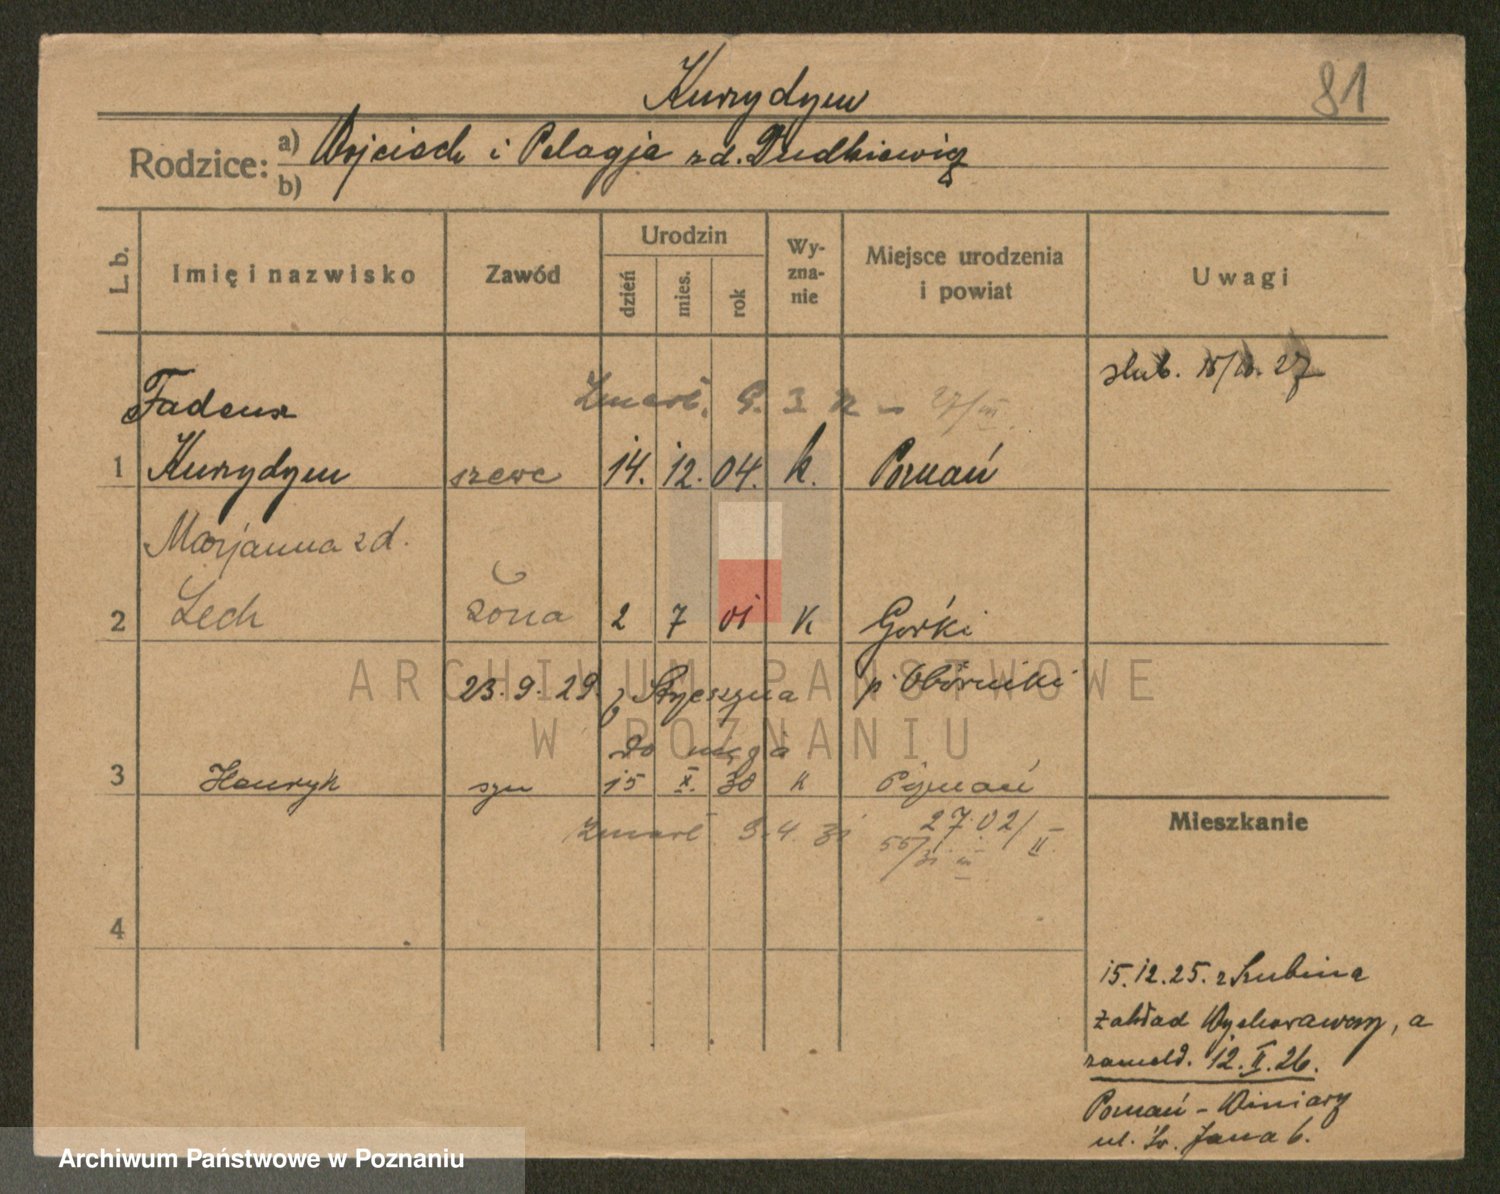 Kurzydym
81
Rodzice: a) Wojciech i Pelagja zd. Dudkiewicz
b)
L. b.
Imię i nazwisko
Zawód
Urodzin
dzień
mies.
rok
Wy-
zna-
nie
Miejsce urodzenia
i powiat
Uwagi
ślub. 27
Tadeusz
Zmarł. 27/III
1 Kurzydym szewc 14. 12. 04. k. Poznań
Marjanna zd.
2 Lech żona 2 7 01 K Gorki
23.9.29. z Stycszyna p. Oborniki
do męża
3 Henryk syn 15 X. 30 k Poznań
Zmarł 9.4.31 2702/II
55/31 III
4
Mieszkanie
15.12.25. z Szubina
zakład Wychowawczy, a
zameld. 12.II.26.
Poznań - Winiary
ul. Św. Jana 6.
ARCHIWUM PAŃSTWOWE
W POZNANIU
Archiwum Państwowe w Poznaniu